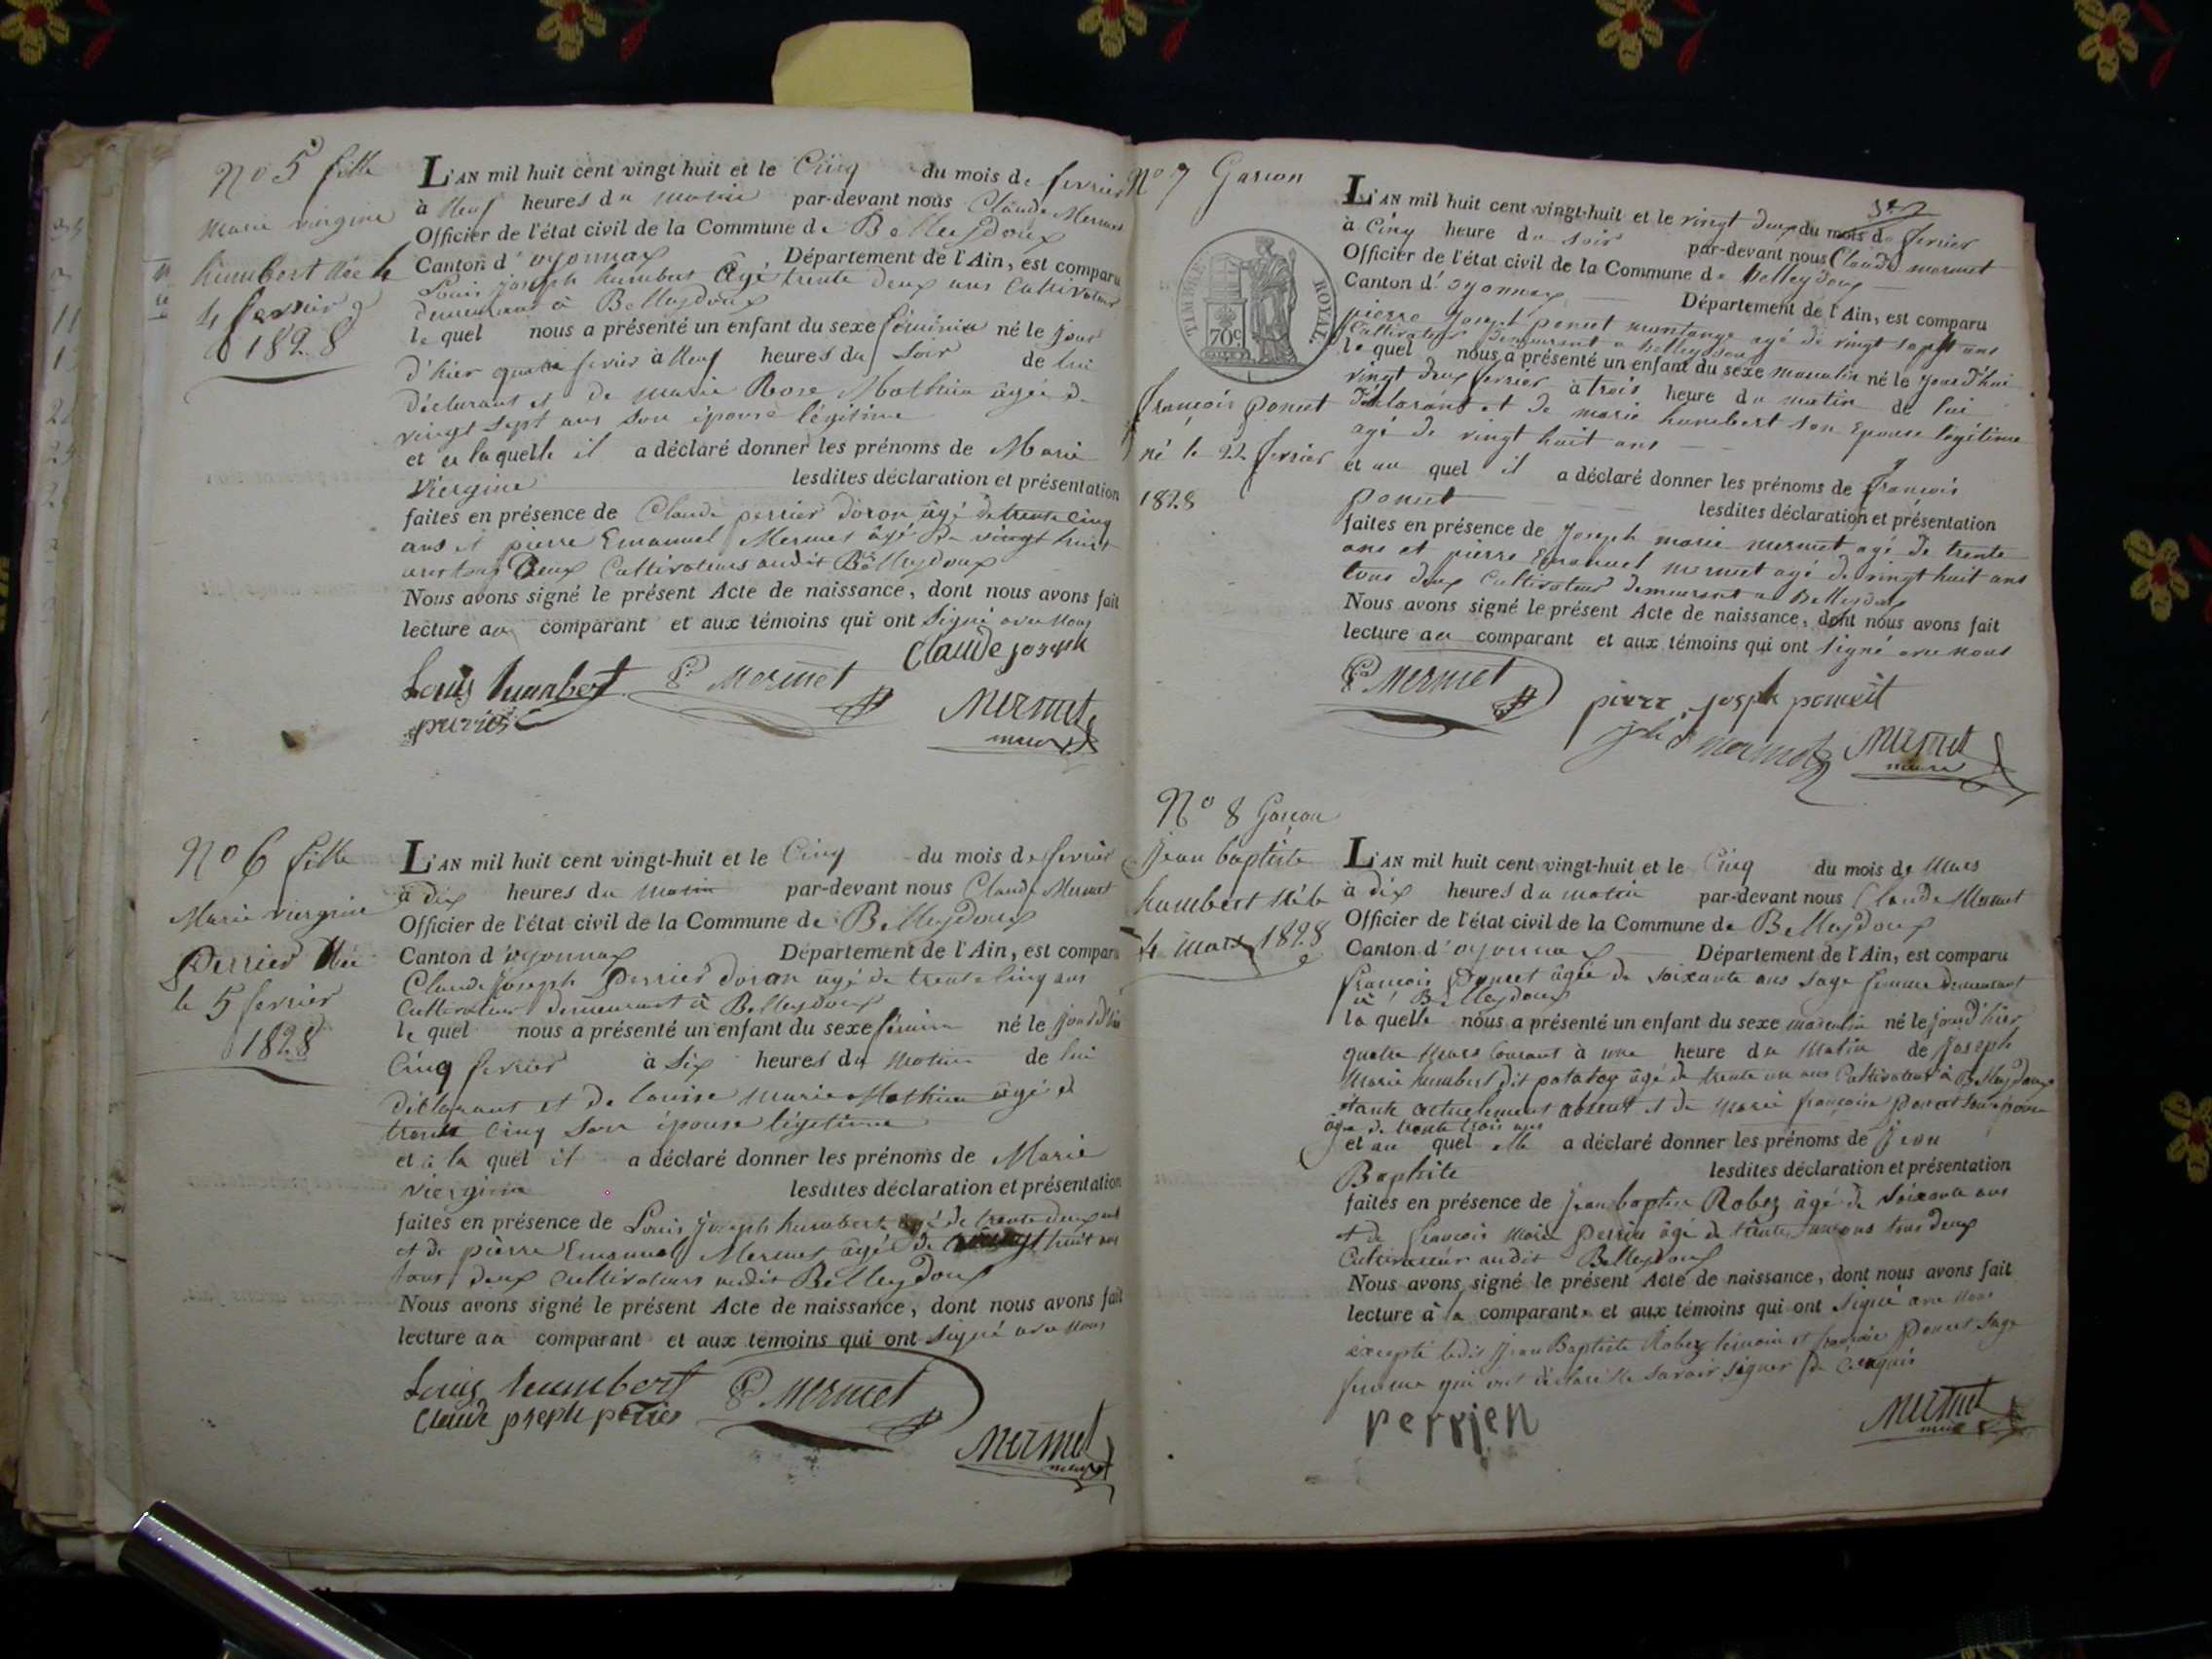 No 5 fille
Marie viergine
humbert Née le
4 fevrier
1828
L'AN mil huit cent vingt huit et le Cinq du mois de fevrier
à Neuf heures du matin par-devant nous Claude Mermet
Officier de l'état civil de la Commune de Belleydoux
Canton d'oyonnax Département de l'Ain, est comparu
Louis joseph humbert âgé trente deux ans Cultivateur
demeurant à Belleydoux
le quel nous a présenté un enfant du sexe féminin né le jour
d'hier quatre fevrier à Neuf heures du soir de lui
déclarant et de marie Rose Mathieu âgée de
vingt sept ans son épouse légitime
et a laquelle il a déclaré donner les prénoms de Marie
Viergine lesdites déclaration et présentation
faites en présence de Claude perrier doron âgé de trente cinq
ans et pierre Emanuel Mermet âgé de vingt huit
ans tous Deux Cultivateurs audit Belleydoux
Nous avons signé le présent Acte de naissance, dont nous avons fait
lecture au comparant et aux témoins qui ont Signé avec Nous
Claude joseph
Louis humbert P Mermet
perrier Mermet
maire
No 6 fille
Marie viergine
Perrier Née
le 5 fevrier
1828
L'AN mil huit cent vingt-huit et le Cinq du mois de fevrier
à dix heures du matin par-devant nous Claude Mermet
Officier de l'état civil de la Commune de Belleydoux
Canton d'oyonnax Département de l'Ain, est comparu
Claude Joseph Perrier doron agé de trente cinq ans
Cultivateur demeurant à Belleydoux
le quel nous a présenté un enfant du sexe féminin né le jourd'hui
Cinq fevrier à Six heures du matin de lui
déclarant et de louise marie Mathieu âgé de
trente cinq son épouse légitime
et à la quel il a déclaré donner les prénoms de Marie
viergine lesdites déclaration et présentation
faites en présence de Louis joseph humbert agé de trente deux ans
et de pierre Emanuel Mermet âgé de vingt huit ans
tous deux cultivateurs audit Belleydoux
Nous avons signé le présent Acte de naissance, dont nous avons fait
lecture au comparant et aux temoins qui ont signé avec nous
Louis humbert P Mermet
Claude joseph perrier
Mermet
maire
No 7 Garson
TIMBRE ROYAL
70c
françois poncet
né le 22 fevrier
1828
L'AN mil huit cent vingt-huit et le vingt deux du mois de fevrier
à Cinq heure du soir par-devant nous Claude mermet
Officier de l'état civil de la Commune de Belleydoux
Canton d'oyonnax Département de l'Ain, est comparu
pierre Joseph poncet muntange agé de vingt sept ans
Cultivateur demeurant a belleydoux
le quel nous a présenté un enfant du sexe masculin né le jourd'hui
vingt deux fevrier à trois heure du matin de lui
déclarant et de marie humbert son Epouse légitime
agé de vingt huit ans
et au quel il a déclaré donner les prénoms de françois
poncet lesdites déclaration et présentation
faites en présence de Joseph marie mermet agé de trente
ans et pierre Emanuel mermet agé de vingt huit ans
tous deux Cultivateur demeurant a Belleydoux
Nous avons signé le présent Acte de naissance, dont nous avons fait
lecture au comparant et aux témoins qui ont signé avec nous
P Mermet
pierre joseph poncet
jh mermet Mermet
maire
No 8 Garson
jean baptiste
humbert Né le
4 mars 1828
L'AN mil huit cent vingt-huit et le Cinq du mois de Mars
à dix heures du matin par-devant nous Claude Mermet
Officier de l'état civil de la Commune de Belleydoux
Canton d'oyonnax Département de l'Ain, est comparu
françoise Poncet âgée de soixante ans sage femme demeurant
à Belleydoux
la quelle nous a présenté un enfant du sexe masculin né le jourd'hier
quatre Mars Courant à une heure du Matin de Joseph
Marie humbert dit patatoz âgé de trente un ans Cultivateur à Belleydoux
étante actuelement absent et de Marie françoise poncet son épouse
âgée de trente trois ans
et au quel elle a déclaré donner les prénoms de jean
Baptiste lesdites déclaration et présentation
faites en présence de jean baptiste Robez âgé de Soixante ans
et de françois Marie Perrier âgé de trente ans tous deux
Cultivateur audit Belleydoux
Nous avons signé le présent Acte de naissance, dont nous avons fait
lecture à la comparante et aux témoins qui ont signé avec Nous
excepté ledit Jean Baptiste Robez témoin et françoise Poncet Sage
femme qui ont déclaré Ne savoir signer de ce requis
perrien Mermet
maire